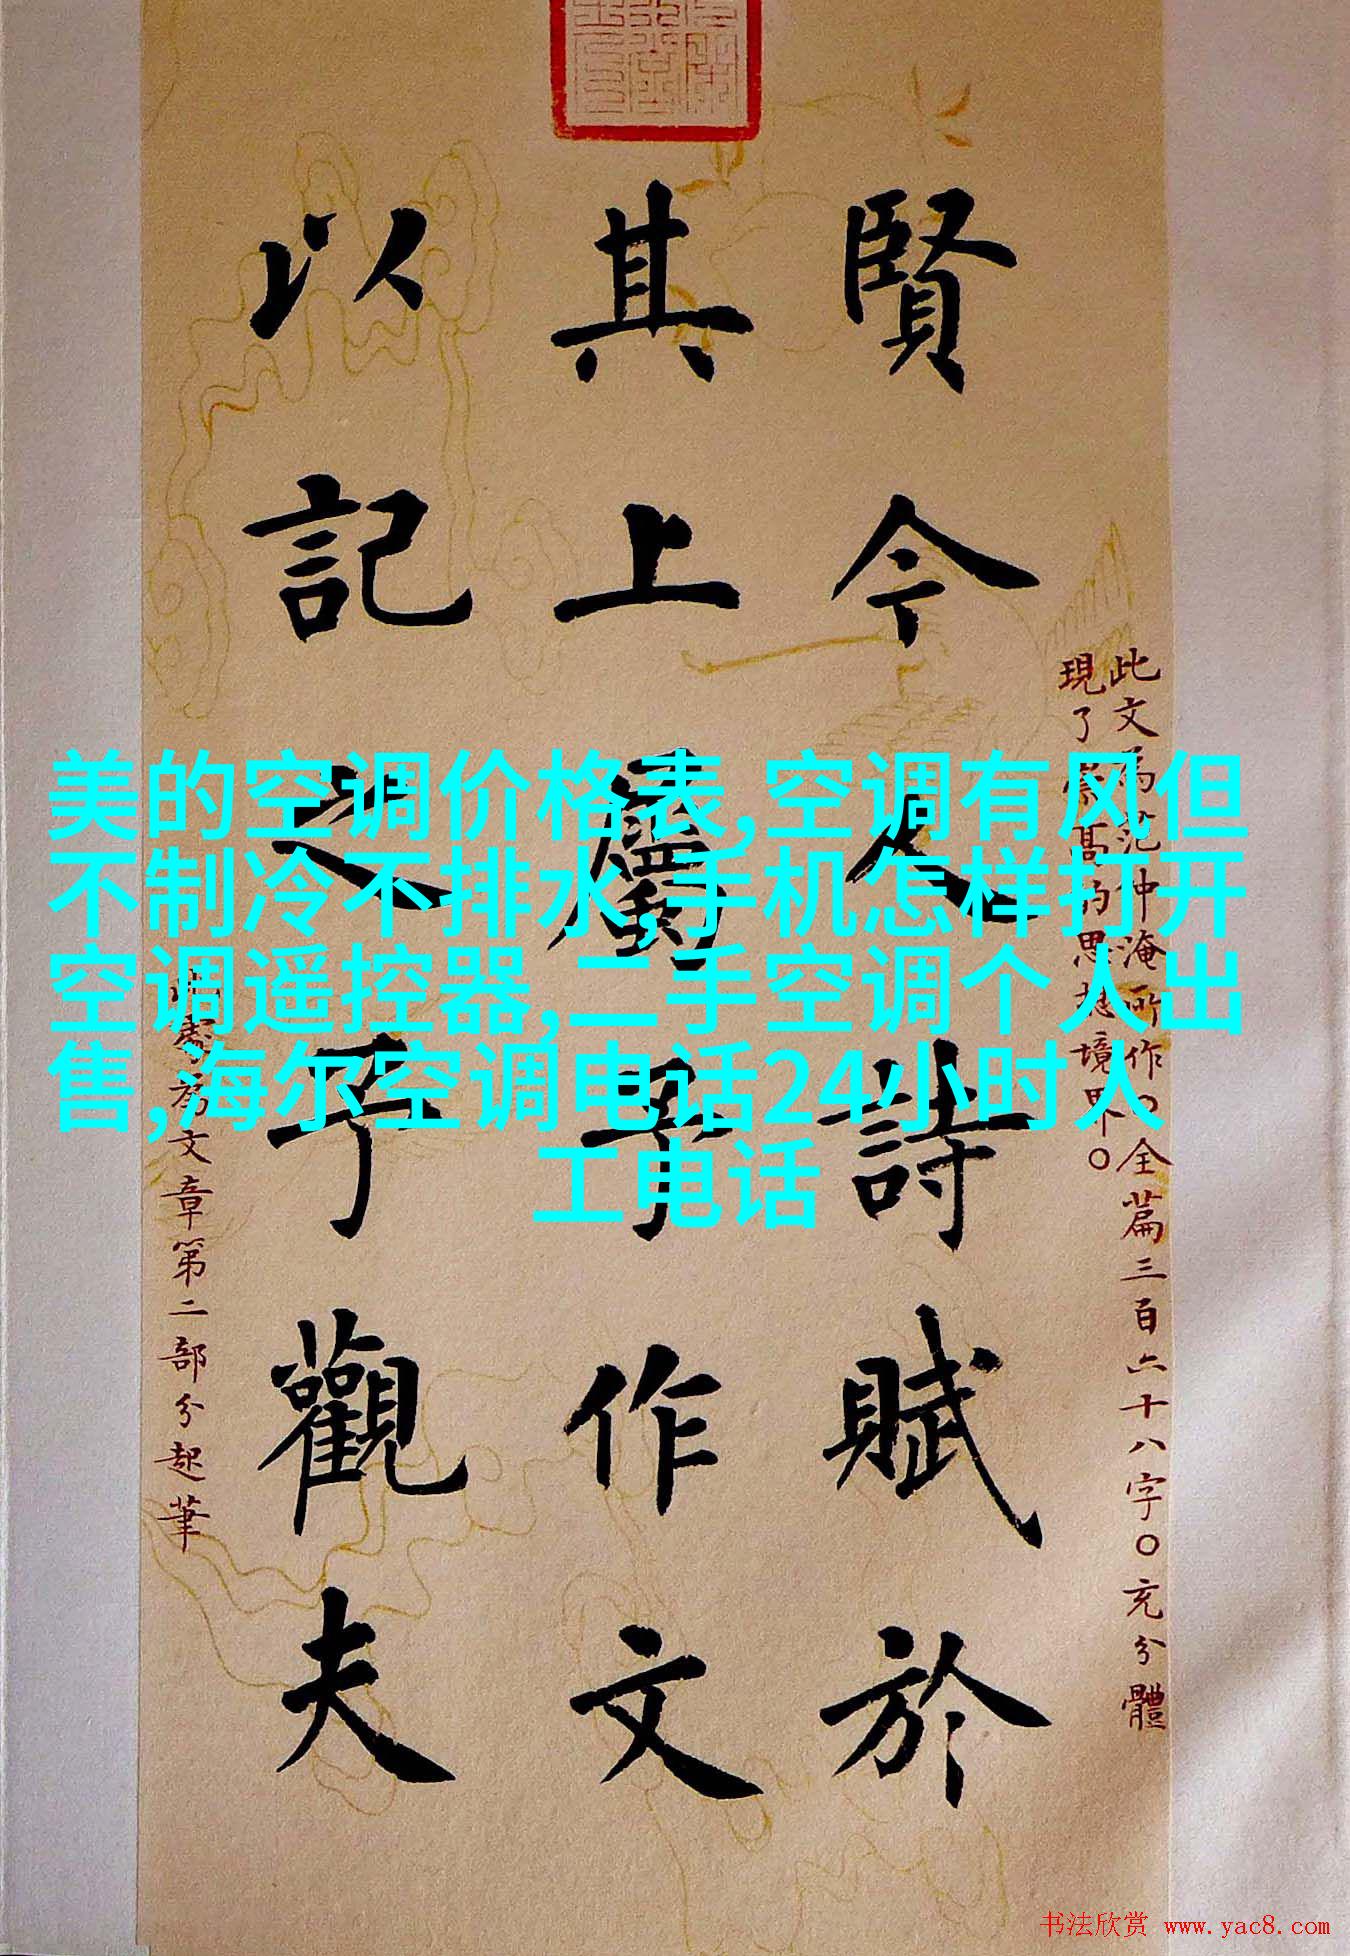 賢今人詩賦於
其上屬予作文
以記之予觀夫
此文為范仲淹所作。全篇三百六十八字。充分體
現了崇高的思想境界。
此處為文章第二部分起筆
美的空调价格表,空调有风但
不制冷不排水,手机怎样打开
空调遥控器,二手空调个人出
售,海尔空调电话24小时人
工电话
书法欣赏 www.yac8.com